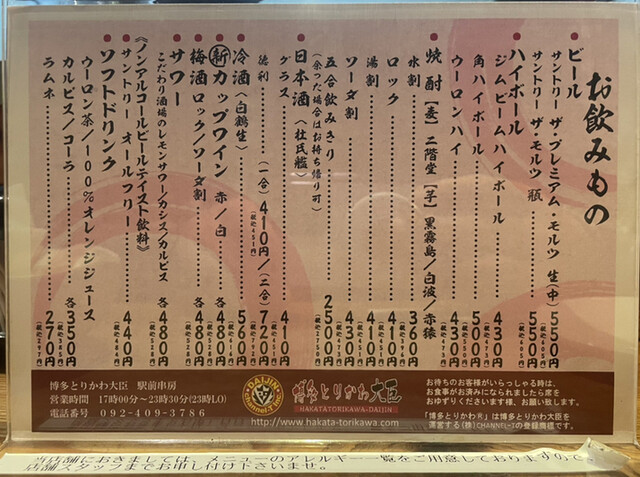 お飲みもの
●ビール
サントリー ザ・プレミアム・モルツ 生(中)……550円(税込605円)
サントリー ザ・モルツ 瓶……550円(税込605円)
●ハイボール
ジムビームハイボール……430円(税込473円)
角ハイボール……
ウーロンハイ……430円(税込473円)
●焼酎 【麦】二階堂 【芋】黒霧島/白波/赤猿
水割……360円(税込396円)
ロック……410円(税込451円)
湯割……410円(税込451円)
ソーダ割……430円(税込473円)
五合飲みきり……2500円(税込2750円)
(余った場合はお持ち帰り可)
●日本酒(杜氏鑑)
グラス……410円(税込451円)
徳利……(一合)410円(税込451円)/(二合)
●冷酒(白鶴生)……
●㊟新カップワイン 赤/白……各480円(税込528円)
●梅酒 ロック/ソーダ割……各480円(税込528円)
●サワー
こだわり酒場のレモンサワー/カシス/カルピス 各480円(税込528円)
●《ノンアルコールビールテイスト飲料》
サントリー オールフリー……440円(税込484円)
●ソフトドリンク
ウーロン茶/100%オレンジジュース
カルピス/コーラ……各350円(税込385円)
ラムネ……270円(税込297円)
博多とりかわ大臣 駅前串房
営業時間 17時00分～23時30分(23時LO)
電話番号 092-409-3786
DAIJIN
channel-T.co
博多とりかわ大臣
HAKATATORIKAWA-DAIJIN
http://www.hakata-torikawa.com/
お待ちのお客様がいらっしゃる時は、
お食事がお済みになられましたら席を
おゆずりくださいます様、お願い致します。
「博多とりかわ®」は博多とりかわ大臣を
運営する(株)CHANNEL-Tの登録商標です。
当店舗におきましては、メニューのアレルギー一覧をご用意しておりますので、
店舗スタッフまでお申し付け下さいませ。